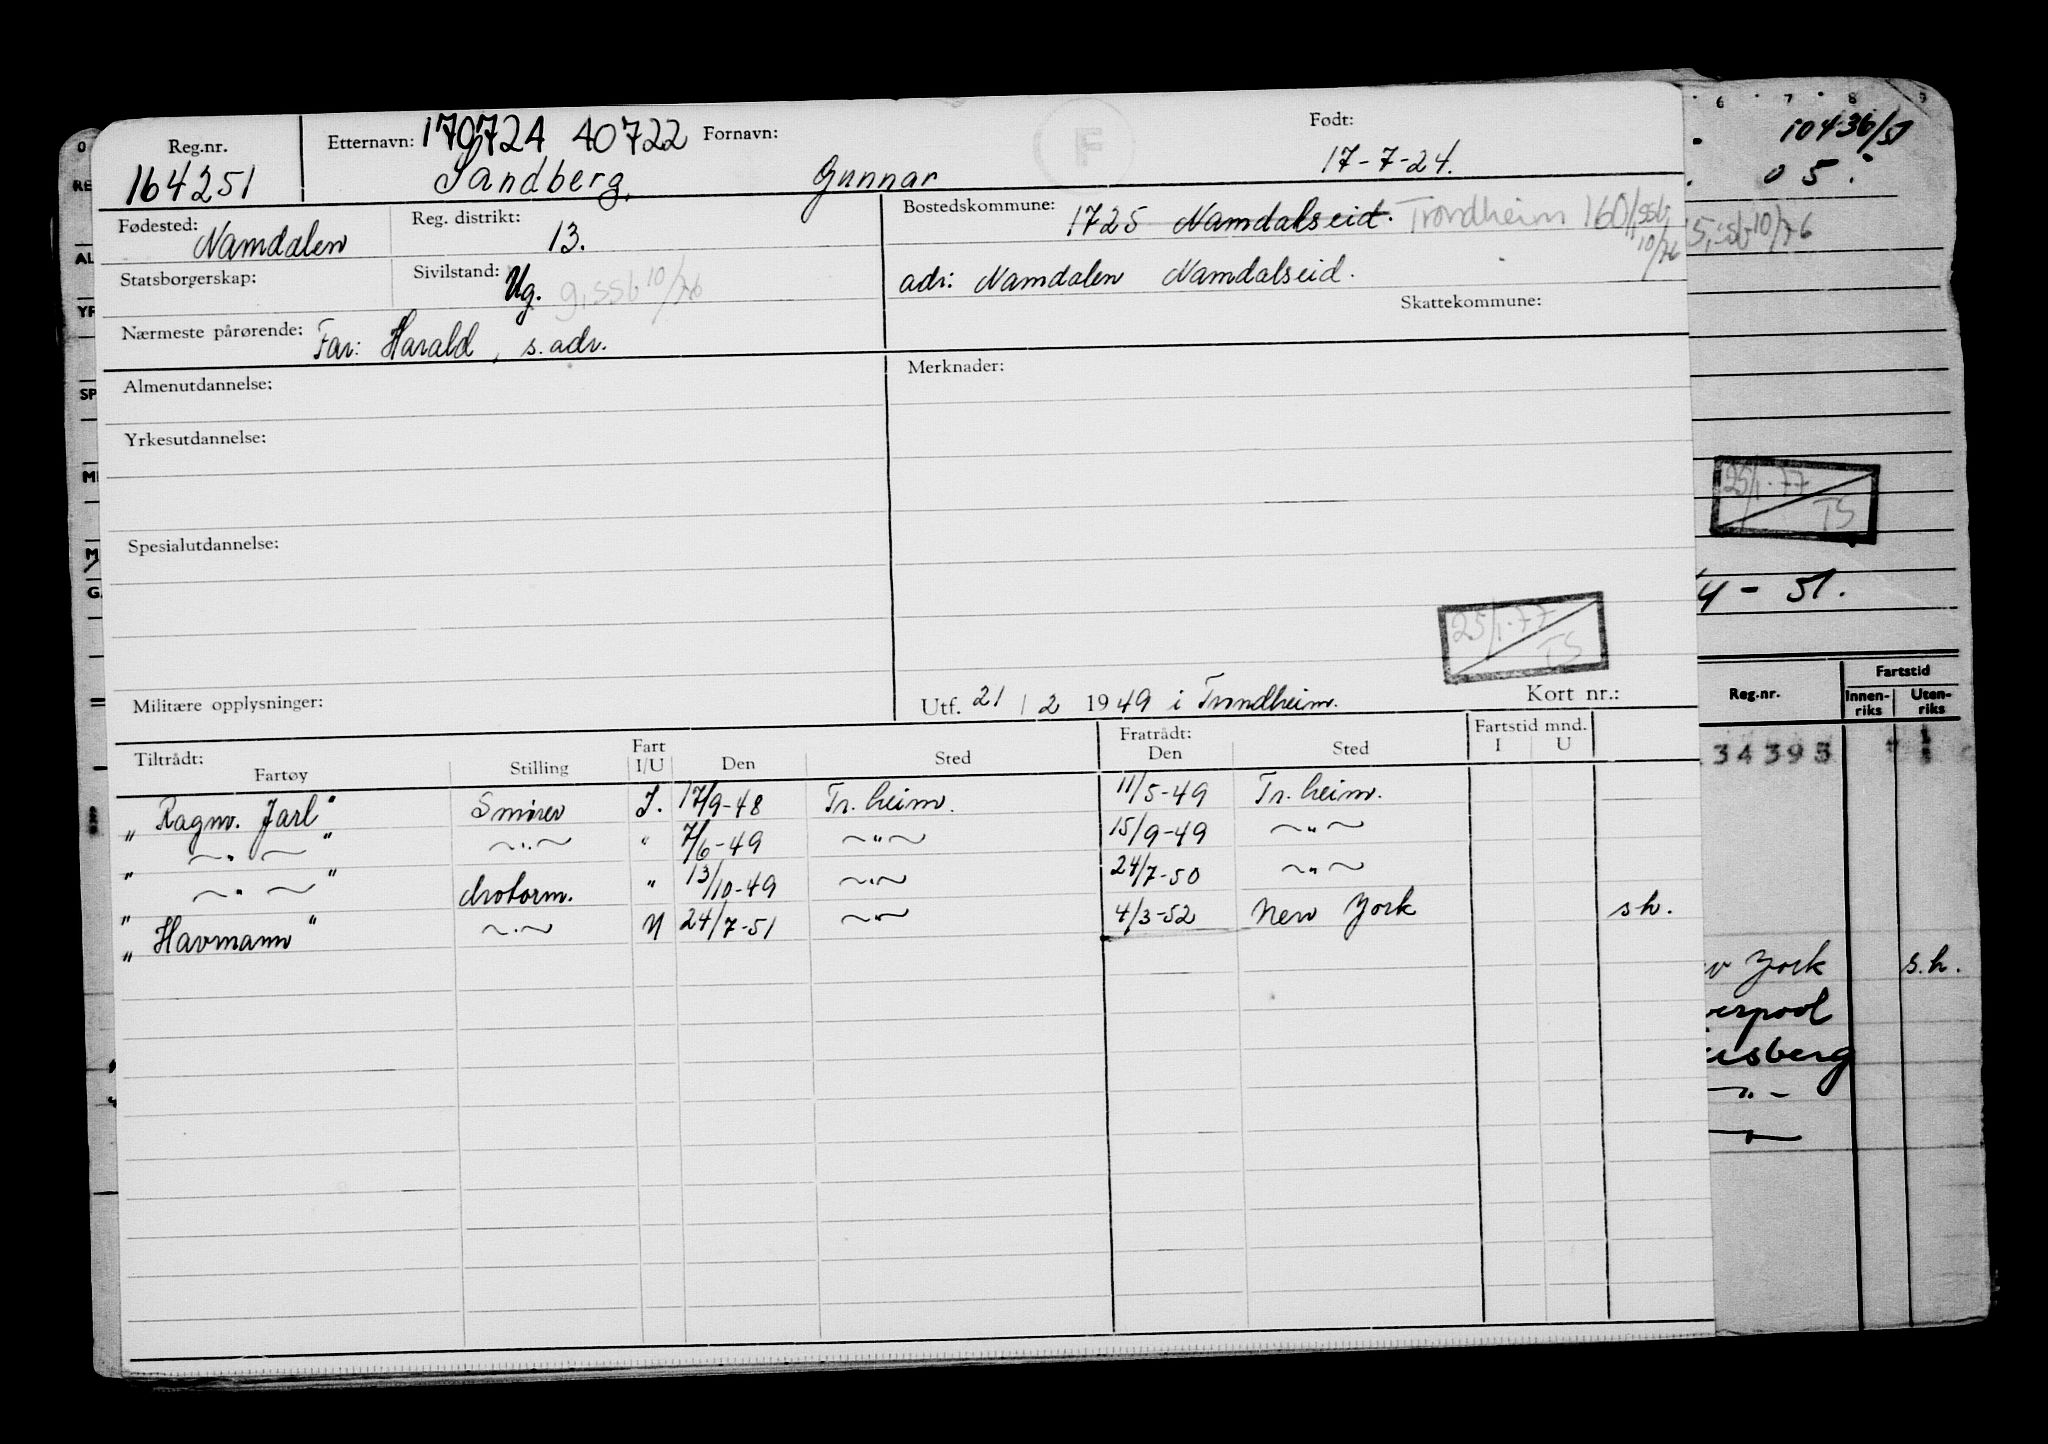 Reg.nr. Etternavn: 170724 40722 Fornavn: F Født:
164251 Sandberg, Gunnar 17-7-24.
Fødested: Namdalen Reg. distrikt: 13. Bostedskommune: 1725 Namdalseid. Trondheim 160/ssb, 10/76
Statsborgerskap: Sivilstand: Ug. g, ssb 10/76 adr: Namdalen Namdalseid.
Skattekommune:
Nærmeste pårørende: Far: Harald, s. adr.
Almenutdannelse: Merknader:
Yrkesutdannelse:
Spesialutdannelse:
25/1-77
TS
Militære opplysninger: Utf. 21 / 2 1949 i Trondheim. Kort nr.:
Tiltrådt: Fart Fratrådt: Fartstid mnd.
Fartøy Stilling I/U Den Sted Den Sted I U
"Ragnv. Jarl" Smører I. 17/9-48 Tr.heim. 11/5-49 Tr.heim.
" ~"~ " ~"~ " 7/6-49 ~"~ 15/9-49 ~"~
" ~"~ " Motorm. " 13/10-49 ~"~ 24/7-50 ~"~
"Havmann" ~"~ U 24/7-51 ~"~ 4/3-52 New York s.h.
0 6 7 8 9
10436/51
05.
ssb 10/76
RE
AL
YR
SP
M
G
25/1-77
TS
4 - 51.
Reg.nr. Fartstid
Innen-riks Uten-riks
34393
York s.h.
verpool
sberg
~"~